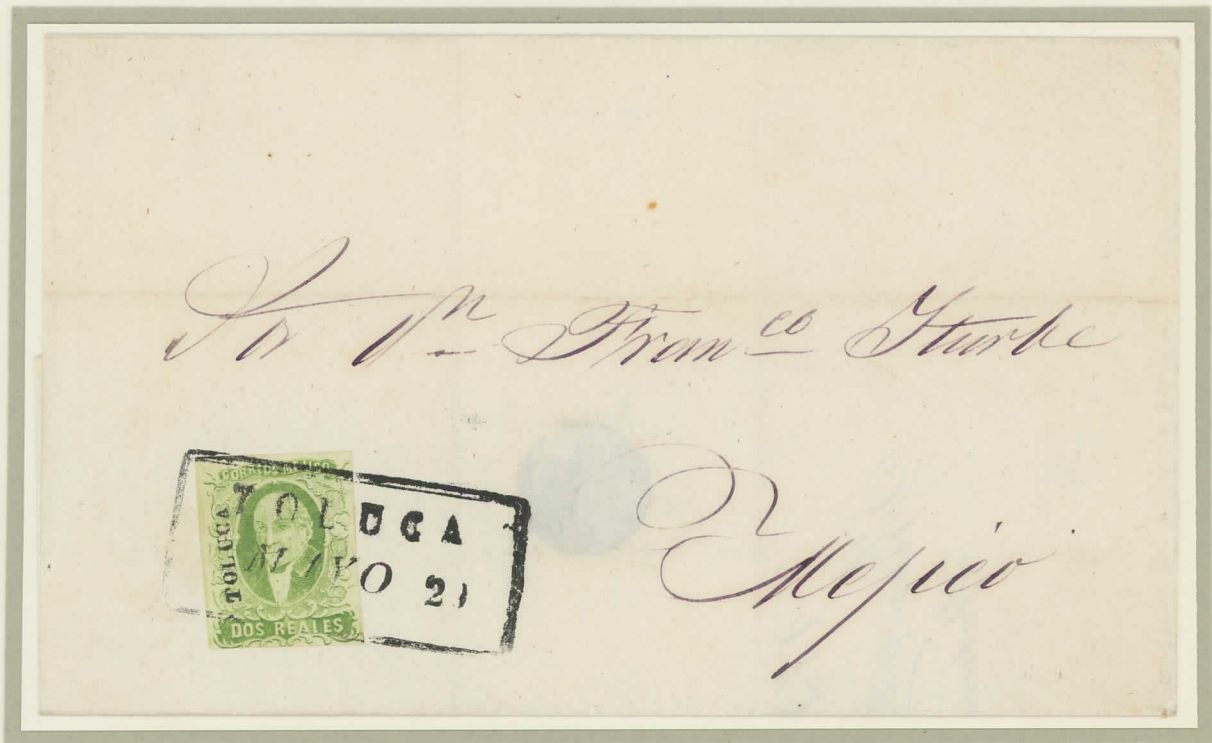 Sor Dn Franco Iturbe
Mejico
CORREOS MEJICO
TOLUCA
DOS REALES
TOLUCA
MAYO